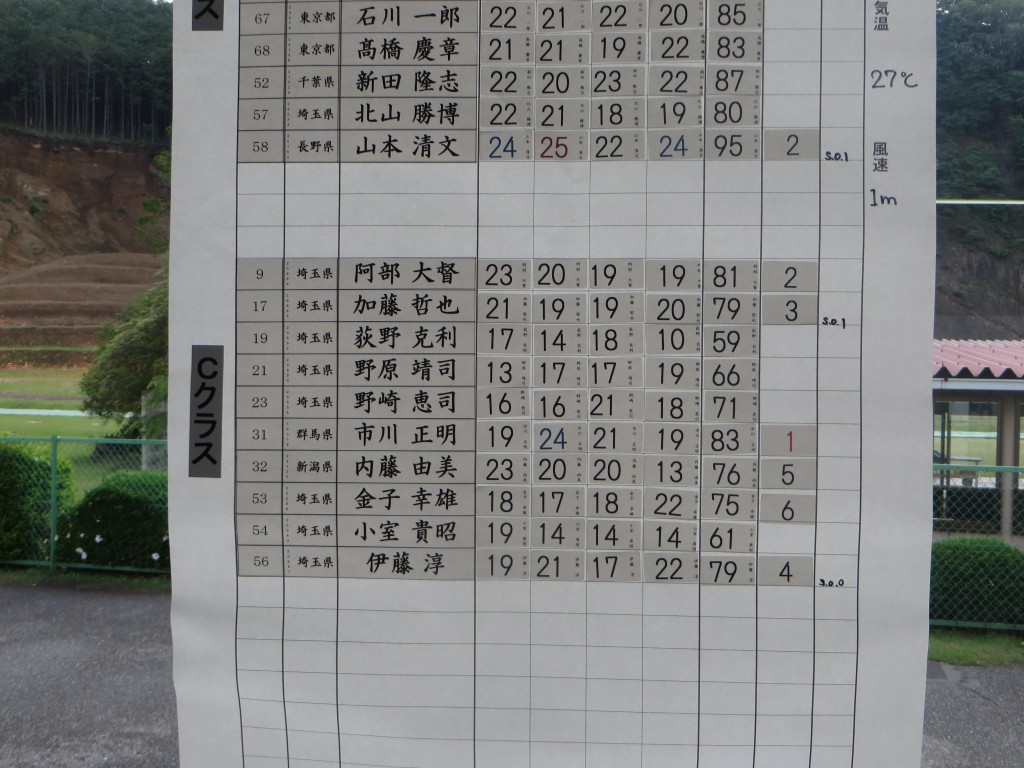 ス
67 東京都 石川 一郎 22 21 22 20 85
68 東京都 髙橋 慶章 21 21 19 22 83
52 千葉県 新田 隆志 22 20 23 22 87
57 埼玉県 北山 勝博 22 21 18 19 80
58 長野県 山本 清文 24 25 22 24 95 2 S.O.1
気温
27℃
風速
1m
Cクラス
9 埼玉県 阿部 大督 23 20 19 19 81 2
17 埼玉県 加藤 哲也 21 19 19 20 79 3 S.O.1
19 埼玉県 荻野 克利 17 14 18 10 59
21 埼玉県 野原 靖司 13 17 17 19 66
23 埼玉県 野崎 恵司 16 16 21 18 71
31 群馬県 市川 正明 19 24 21 19 83 1
32 新潟県 内藤 由美 23 20 20 13 76 5
53 埼玉県 金子 幸雄 18 17 18 22 75 6
54 埼玉県 小室 貴昭 19 14 14 14 61
56 埼玉県 伊藤 淳 19 21 17 22 79 4 S.O.0